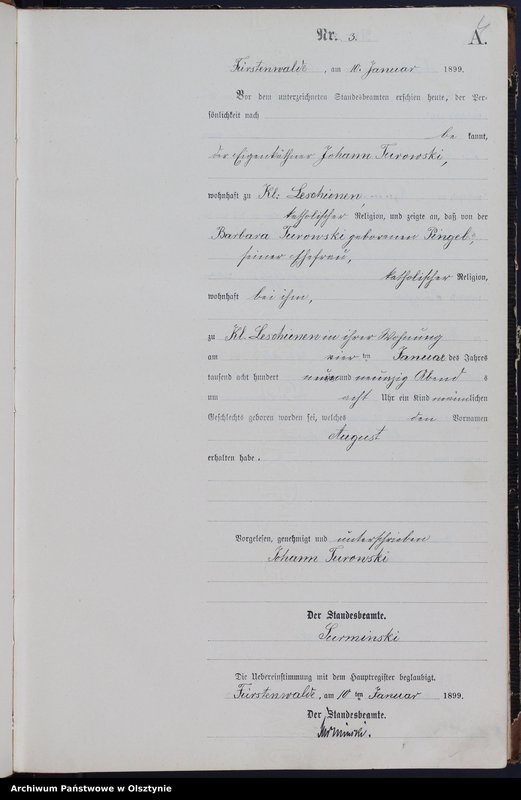 Nr. 3.
A.
Fürstenwalde, am 10. Januar 1899.
Vor dem unterzeichneten Standesbeamten erschien heute, der Per-
sönlichkeit nach
be kannt,
der Eigenthümer Johann Turowski,
wohnhaft zu Kl: Leschienen,
katholischer Religion, und zeigte an, daß von der
Barbara Turowski geborenen Pingel,
seiner Ehefrau,
katholischer Religion,
wohnhaft bei ihm,
zu Kl. Leschienen in ihrer Wohnung
am vier ten Januar des Jahres
tausend acht hundert neun und neunzig Abend s
um acht Uhr ein Kind männlichen
Geschlechts geboren worden sei, welches den Vornamen
August
erhalten habe.
Vorgelesen, genehmigt und unterschrieben
Johann Turowski
Der Standesbeamte.
Surminski
Die Uebereinstimmung mit dem Hauptregister beglaubigt.
Fürstenwalde, am 10 ten Januar 1899.
Der Standesbeamte.
Surminski.
Archiwum Państwowe w Olsztynie